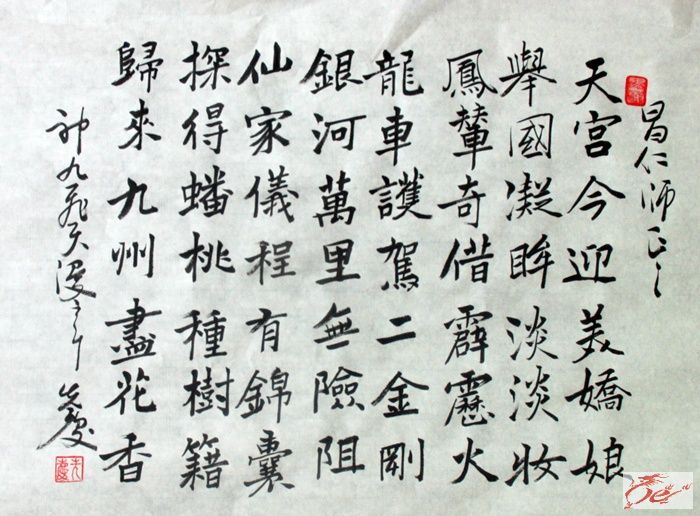 昌仁师正之
天宮今迎美嬌娘
舉國凝眸淡淡妝
鳳輦奇借霹靂火
龍車護駕二金剛
銀河萬里無險阻
仙家儀程有錦囊
探得蟠桃種樹籍
歸來九州盡花香
神九飛天